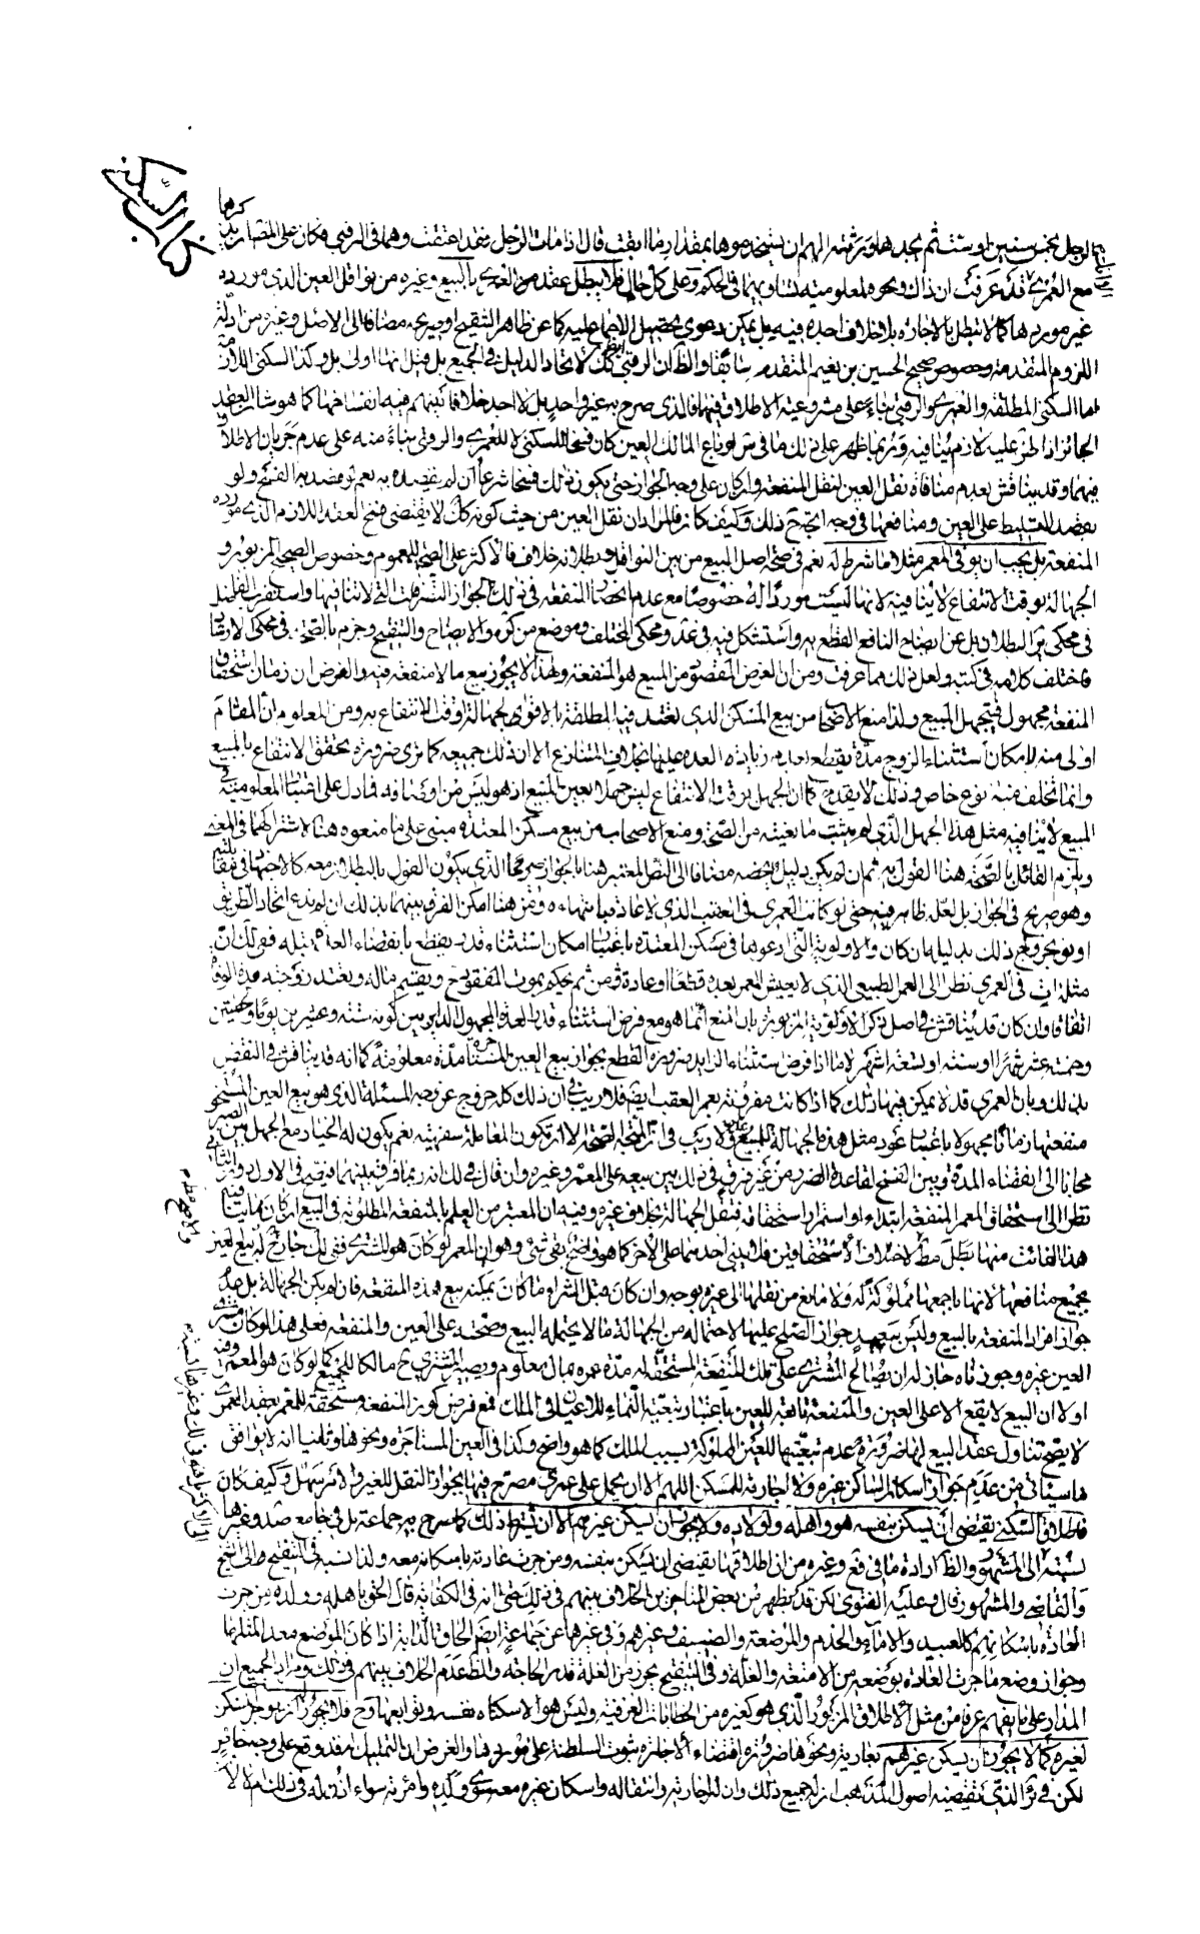 كتاب السكنى
كرها
الرجل بخمس سنين او ست ثم يجدها ورثته الهم ان يستخدموها بمقدار ما ابقت قال اذا مات الرجل فقد اعتقت وهما في الرقبى فكان على المصا
مع العمرى قد عرفت ان ذلك ونحوه لمعلومية تساويهما في الحكم وعلى كل حال فلا يبطل عقد من العمرى بالبيع وغيره من نواقل العين الذي مورده
غير موردها كما لا تبطل بالاجارة بلا خلاف اجده فيه بل يمكن دعوى تحصيل الاجماع عليه كما عن ظاهر التنقيح او صريحه مضافا الى الاصل وغيره من ادلة
اللزوم المتقدمة وخصوص صحيح الحسين بن نعيم المتقدم سابقا والظ ان الرقبى كك لاتحاد الدليل في الجميع بل قيل انها اولى بل وكذا السكنى اللازمة
اما السكنى المطلقة والعمرى والرقبى بناء على مشروعية الاطلاق فيهما فالذي صرح به غير واحد بل لا اجد خلافا بينهم فيه انفساخها كما هو شان العقد
الجائز اذا طرء عليه لازم ينافيه وربما ظهر على ذلك ما في س لو باع المالك العين كان فسخا للسكنى لا للعمرى والرقبى بناء منه على عدم جريان الاطلاق
فيهما وقد يناقش بعدم منافاة نقل العين لنقل المنفعة وان كان على وجه الجواز حتى يكون ذلك فسخا شرعا ان لم يقصده به نعم لو قصد به الفسخ ولو
بقصد التسليط على العين ومنافعها في وجه اتجه ح ذلك وكيف كان فالمراد ان نقل العين من حيث كونه كك لا يقتضى فسخ العقد اللازم الذي مورده
المنفعة بل يجب ان يوفي المعمر مثلا ما شرط له نعم في صحة اصل البيع من بين النواقل وبطلانه خلاف فالاكثر على الصحة للعموم وخصوص الصحيح المزبور و
الجهالة بوقت الانتفاع لا ينافيه لانها ليست موردا له خصوصا مع عدم انحصار المنفعة في ذلك لجواز التصرفات التي لا تنافيها واستقرب الفاضل
في محكي ير البطلان بل عن ايضاح النافع القطع به واستشكل فيه في عد ومحكي المختلف وموضع من كره والايضاح والتنقيح وجزم بالصحة في محكي الارشاد
فاختلف كلامه في كتبه ولعل ذلك مما عرفت ومن ان الغرض المقصود من المبيع هو المنفعة ولهذا لا يجوز بيع ما لا منفعة فيه والغرض ان زمان استحقاق
المنفعة مجهول فيتجهل المبيع ولذا منع الاصحاب من بيع المسكن الذي تعتد فيه المطلقة بالاقراء لجهالة وقت الانتفاع به ومن المعلوم ان المقام
اولى منه لامكان استثناء الزوج مدة يقطع بعدم زيادة العدة عليها بخلاف المتنازع الا ان ذلك جميعه كما ترى ضرورة تحقق الانتفاع بالمبيع
وانما تخلف منه نوع خاص وذلك لا يقدح كما ان الجهل بوقت الانتفاع ليس جهلا بعين المبيع اذ هو ليس من اوصافه فما دل على اعتبار المعلومية في
المبيع لا ينافيه مثل هذا الجهل الذي لم يثبت مانعيته من الصحة ومنع الاصحاب من بيع مسكن المعتدة مبنى على ما منعوه هنا لاشتراكهما في المعنى
ويلزم القائل بالصحة هنا القول به ثم ان لم يكن دليل يخصه مضافا الى النص المعتبر هنا بالجواز صريحا الذي يكون القول بالبطلان معه كالاجتهاد في مقابلته
وهو صريح في الجواز بل لعله ظاهر فيه حتى لو كانت العمرى في العقب الذي لا عادة فيها منهاه ومن هنا امكن الفرق بينهما بذلك ان لم ندع اتحاد الطريق
او نوجر وقع ذلك بدليله ان كان والاولوية التي ادعوها في مسكن المعتدة باعتبار امكان استثناء قدر يقطع بانقضاء العدة مثله فقد قيل ان
مثله ات في العمرى نظرا الى العمر الطبيعي الذي لا يعيش المعمر بعده قطعا او عادة ومن ثم يحكم بموت المفقود ح ويقسم ماله وتعتد زوجته عدة الوفاة
اتفاقا وان كان قد يناقش في اصل ذكر الاولوية المزبورة بان المنع انما هو مع فرض استثناء قدر العدة المجهول الدائر بين كونه ستة وعشرين يوما ولحظتين
وخمسة عشر شهرا او سنة او تسعة اشهر لا ما اذا فرض استثناء الزايد ضرورة القطع بجواز بيع العين المستثناة مدة معلومة كما انه قد يناقش في النقض
بذلك وبان العمرى قد لا يمكن فيها ذلك كما اذا كانت مقرونة بعمر العقب ايضا فلا ريب في ان ذلك كله خروج عن وجه المسئلة الذي هو بيع العين المستحق
منفعتها زمانا مجهولا باعتبار عود مثل هذه الجهالة للمبيع ولا ريب في ان المتجه الصحة الا ان تكون المعاملة سفهية نعم يكون له الخيار مع الجهل بين الصبر
مجانا الى انقضاء المدة وبين الفسخ لقاعدة الضرر من غير فرق في ذلك بين بيعه على المعمر وغيره وان قال في لك انه ربما فرق بينهما فيصح في الاول دون الثاني
نظرا الى استحقاق المعمر المنفعة ابتداء او استمرار استحقاقه فتقل الجهالة بخلاف غيره وفيه ان المعتبر من العلم بالمنفعة المطلوبة في البيع ان كان مما ينافيه
هذا الفائت منها بطل مط لاختلاف الاستحقاقين فلا يبنى احدهما على الاخر كما هو واضح بقى شئ وهو ان المعمر لو كان هو المشترى ففي لك جاز ح له بيع العين
بجميع منافعها لانها باجمعها مملوكة له ولا مانع من نقلها الى غيره بوجه وان كان قبل الشراء ما كان يمكنه بيع هذه المنفعة فانه لم يكن للجهالة بل لعدم
جواز افراد المنفعة بالبيع وليس ببعيد جواز الصلح عليها لاحتماله من الجهالة ما لا يحتمله البيع وصحته على العين والمنفعة فعلى هذا لو كان مشترى
العين غيره وجوزناه جاز له ان يصالح المشترى على تلك المنفعة المستحقة له مدة عمره بمال معلوم ويصير المشترى ح مالكا للجميع كما لو كان هو المعمر وفيه
اولا ان البيع لا يقع الا على العين والمنفعة تابعة للعين باعتبار تبعية النماء للاعيان في الملك فمع فرض كون المنفعة مستحقة للمعمر بعقد العمرى
لا يصح تناول عقد البيع لها ضرورة عدم تبعيتها للعين المملوكة بسبب الملك كما هو واضح وكذا في العين المستاجرة ونحوها وثانيا انه لا يوافق
ما سياتى من عدم جواز اسكان الساكن غيره ولا اجارته للمسكن اللهم الا ان يحمل على عمرى مصرح فيها بجواز النقل للغير والامر سهل وكيف كان
فاطلاق السكنى يقتضى ان يسكن بنفسه هو واهله واولاده ولا يجوز ان يسكن غيرهم الا ان يشترط ذلك كما صرح به جماعة بل في جامع صد وغيرها
نسبته الى المشهور والظ ارادة ما في قع وغيره من ان اطلاقها يقتضى ان يسكن بنفسه ومن جرت عادته باسكانه معه ولذا نسبه في التنقيح الى الشيخ
والقاضي والمشهور قال وعليه الفتوى لكن قد يظهر من بعض المتاخرين الخلاف بينهم في ذلك حتى انه في الكفاية قال الحق باهله وولده من جرت
العادة باسكانهم كالعبيد والاماء والخدم والمرضعة والضيف وغيرهم وفي غيرها عن جماعة ايضا الحاق الدابة اذا كان الموضع معدا لمثلها
وجواز وضع ما جرت العادة بوضعه من الامتعة والغلة وفي التنقيح يحرز من الغلة قدر الحاجة والظ عدم الخلاف بينهم في ذلك ومراد الجميع ان
المدار على ما يفهم عرفا من مثل الاطلاق المزبور الذي هو كغيره من الخطابات العرفية وليس هو الا سكناه نفسه وتوابعها وح فلا يجوز ان يوجر السكن
لغيره كما لا يجوز ان يسكن غيرهم بعارية ونحوها ضرورة اقتضاء الاجارة ثبوت السلطنة على موردها والغرض ان التمليك لم يقع على وجه خاص
لكن في ئر الذي تقتضيه اصول المذهب ان له جميع ذلك وان له اجارته وانتقاله واسكان غيره معه سوى ولده وامرئته سواء اذن له في ذلك ام لا